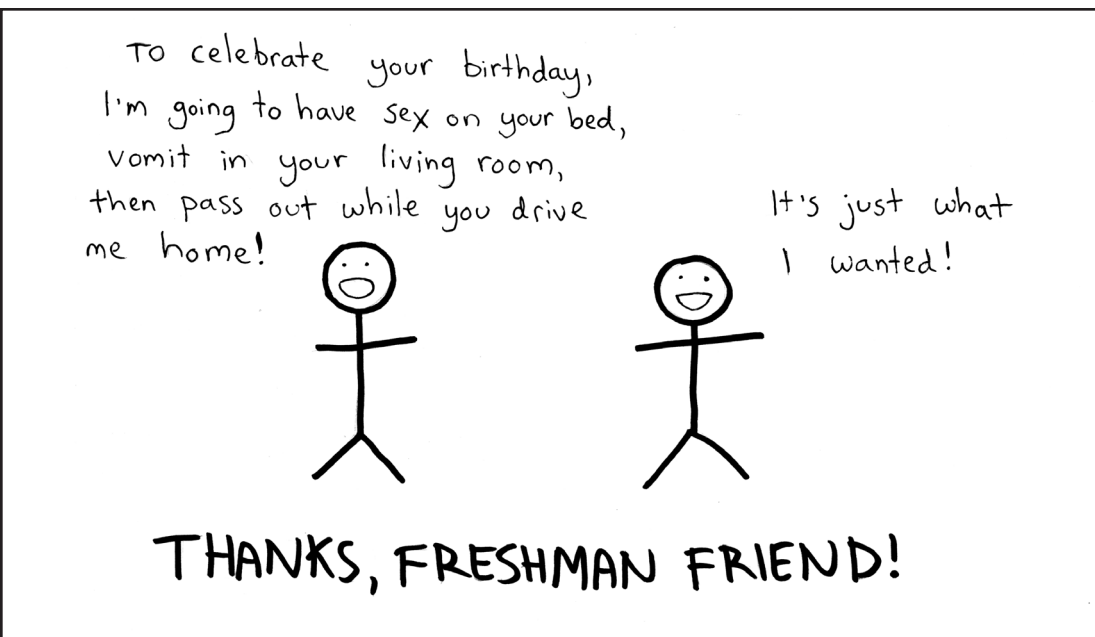 To celebrate your birthday,
I'm going to have sex on your bed,
vomit in your living room,
then pass out while you drive
me home!
It's just what
I wanted!
THANKS, FRESHMAN FRIEND!